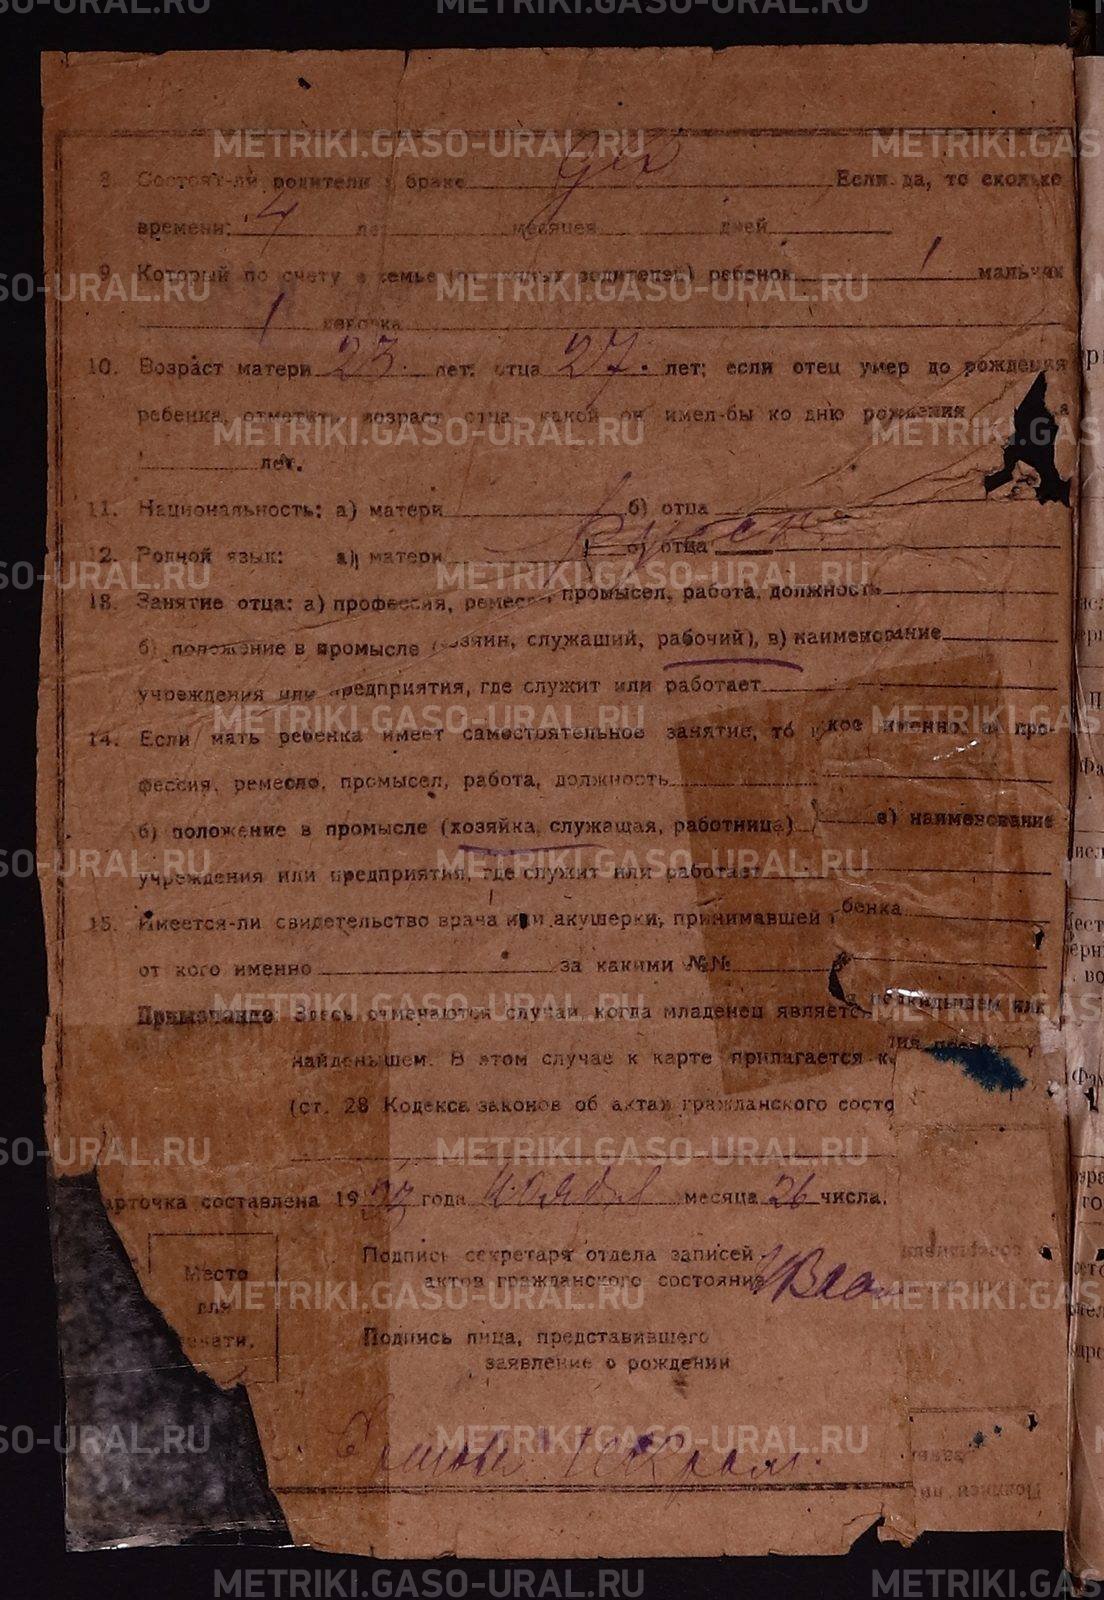 8. Состоят-ли родители в браке да Если да, то сколько
времени: 4 лет месяцев дней
9. Который по счету в семье (от данных родителей) ребенок 1 мальчик
1 девочка
10. Возраст матери 23. лет; отца 27. лет; если отец умер до рождения
ребенка, отметить возраст отца, какой он имел-бы ко дню рождения
лет.
11. Национальность: а) матери б) отца
12. Родной язык: а) матери б) отца
русск
13. Занятие отца: а) профессия, ремесло, промысел, работа, должность
б) положение в промысле (хозяин, служащий, рабочий), в) наименование
учреждения или предприятия, где служит или работает
14. Если мать ребенка имеет самостоятельное занятие, то какое именно: а) про-
фессия, ремесло, промысел, работа, должность
б) положение в промысле (хозяйка, служащая, работница) в) наименование
учреждения или предприятия, где служит или работает
15. Имеется-ли свидетельство врача или акушерки, принимавшей ребенка
от кого именно за какими №№
Примечание: Здесь отмечаются случаи, когда младенец является подкидышем или
найденышем. В этом случае к карте прилагается
(ст. 28 Кодекса законов об актах гражданского состо
Карточка составлена 1927 года ноября месяца 26 числа.
Место
для
печати.
Подпись секретаря отдела записей
актов гражданского состояния
Подпись лица, представившего
заявление о рождении
METRIKI.GASO-URAL.RU